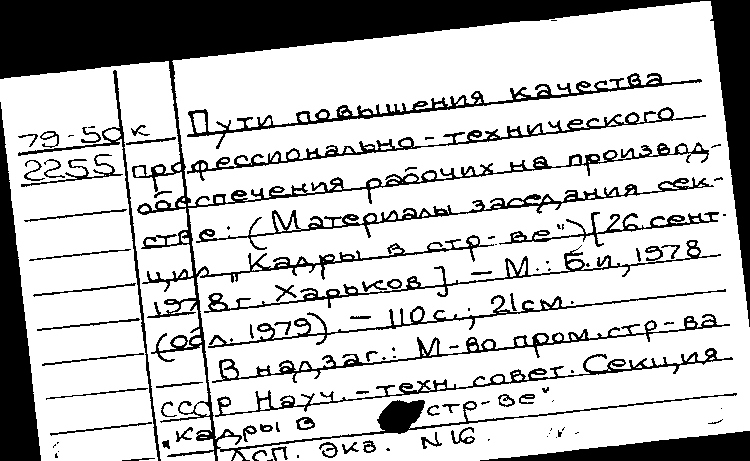 79-50 к Пути повышения качества
2255 профессионально-технического
обеспечения рабочих на производ-
стве: (Материалы заседания сек-
ции „Кадры в стр-ве") [26 сент.
1978 г. Харьков]. - М.: Б.и., 1978
(обл. 1979). - 110 с.; 21 см.
В надзаг.: М-во пром. стр-ва
СССР Науч.-техн. совет. Секция
„Кадры в стр-ве".
ДСП. Экз. N 16.